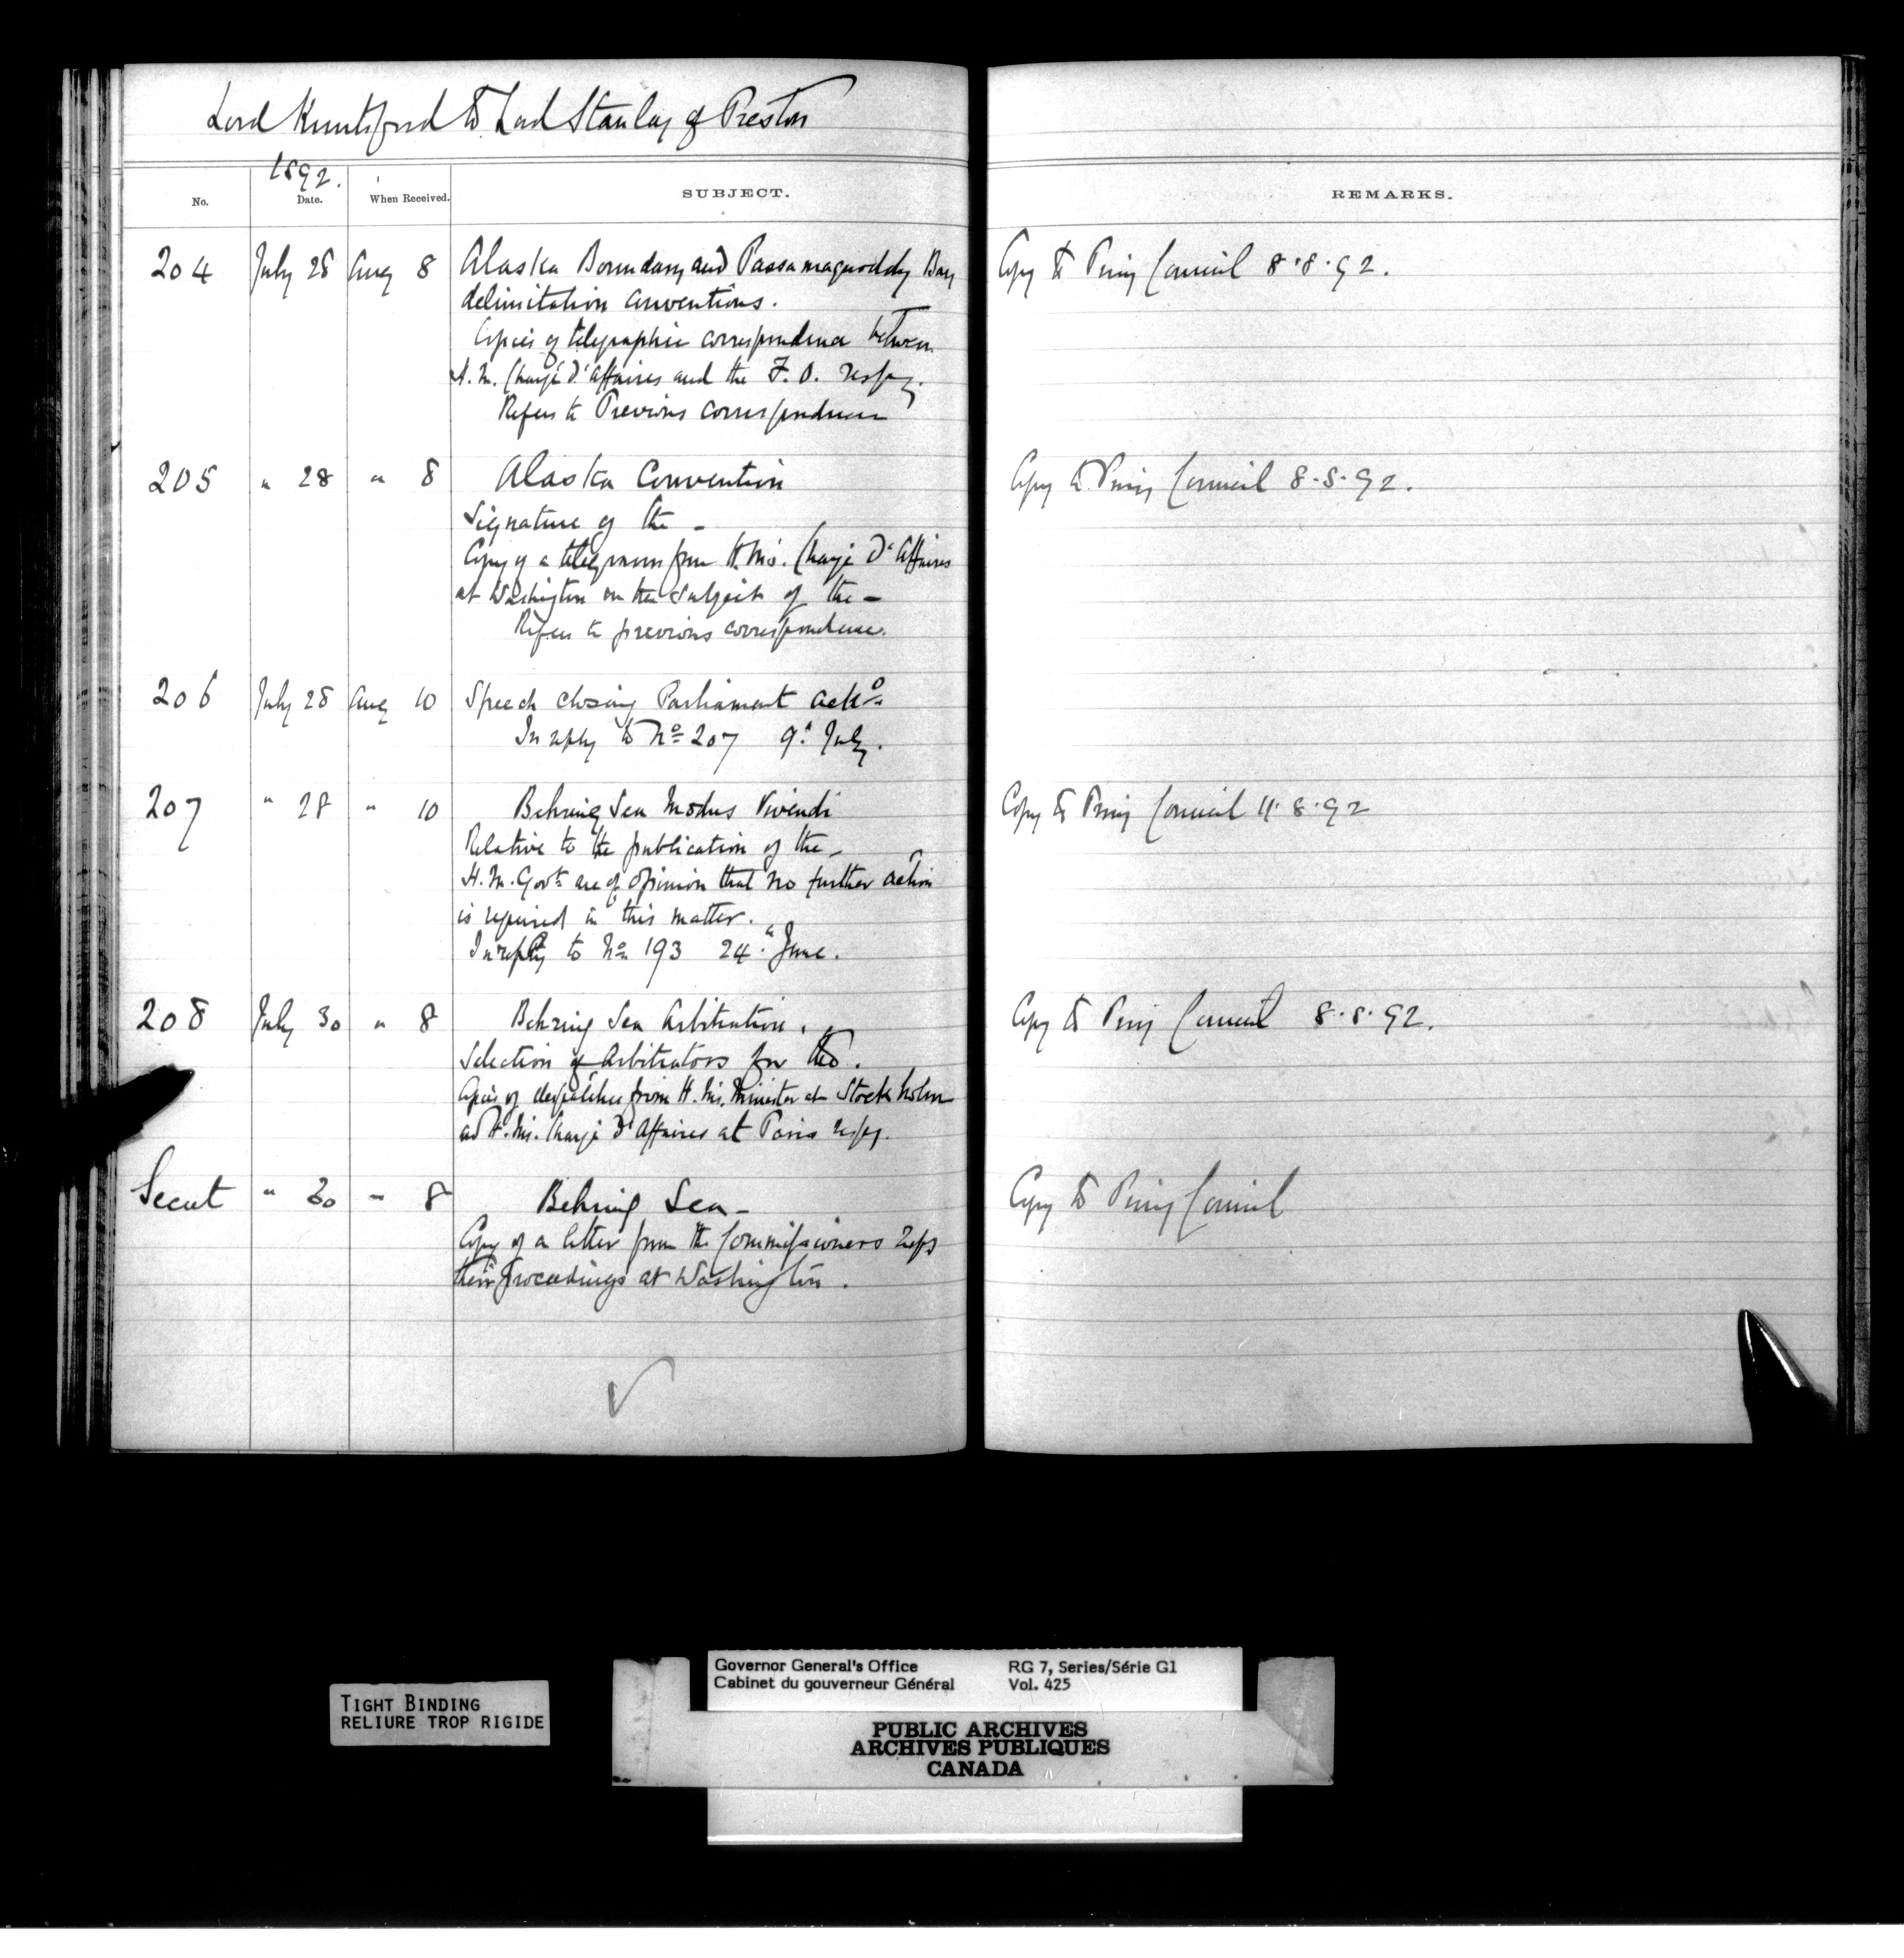 Lord Knutsford to Lord Stanley of Preston
1892.
No. Date. When Received. SUBJECT. REMARKS.
204 July 28 Aug 8 Alaska Boundary and Passamaquoddy Bay Copy to Privy Council 8.8.92.
delimitation Conventions.
Copies of telegraphic correspondence between
H. M. Chargé D'Affaires and the F. O. respg.
Refers to Previous correspondence
205 " 28 " 8 Alaska Convention Copy to Privy Council 8.8.92.
Signature of the –
Copy of a telegram from H. M's. Chargé D'Affaires
at Washington on the subject of the –
Refers to previous correspondence.
206 July 28 Aug 10 Speech closing Parliament ackd
In reply to No 207 9th July.
207 " 28 " 10 Behring Sea Modus Vivendi Copy to Privy Council 11.8.92
Relative to the publication of the –
H. M. Govt are of opinion that no further action
is required in this matter.
In reply to No 193 24th June.
208 July 30 " 8 Behring Sea Arbitration. Copy to Privy Council 8.8.92.
Selection of Arbitrators for the.
Copies of despatches from H. M's. Minister at Stockholm
and H. M's. Chargé D'Affaires at Paris respg.
Secret " 30 " 8 Behring Sea – Copy to Privy Council
Copy of a letter from the Commissioners respg
their proceedings at Washington.
TIGHT BINDING
RELIURE TROP RIGIDE
Governor General's Office RG 7, Series/Série G1
Cabinet du gouverneur Général Vol. 425
PUBLIC ARCHIVES
ARCHIVES PUBLIQUES
CANADA